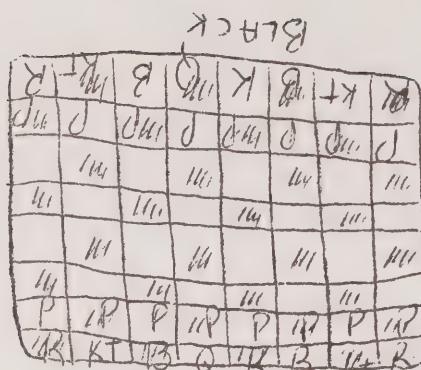 BLACK
R Kt B Q K B Kt R
P P P P P P P P
P P P P P P P P
R KT B Q K B Kt R